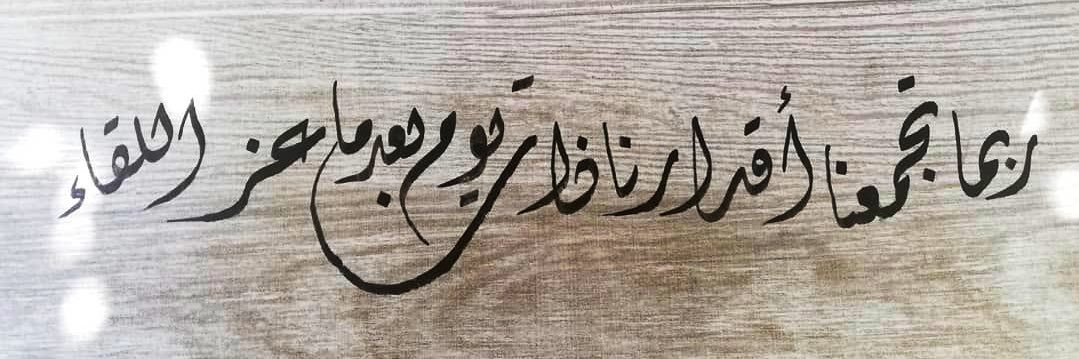 ربما تجمعنا أقدارنا ذات يوم بعدما عز اللقاء